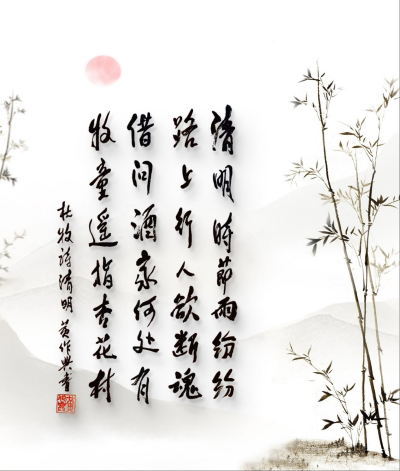 清明时节雨纷纷
路上行人欲断魂
借问酒家何处有
牧童遥指杏花村
杜牧诗清明 黄作兴书